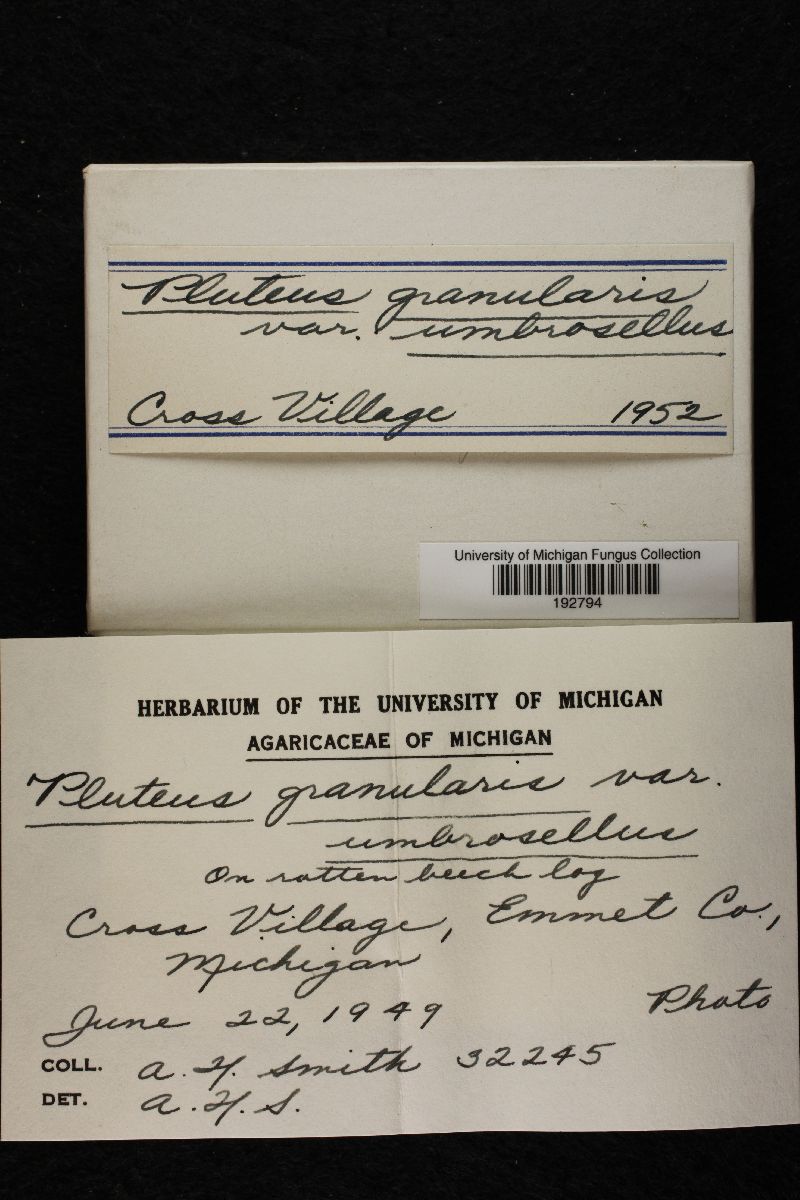 Pluteus granularis
var. umbrosellus
Cross Village 1952
University of Michigan Fungus Collection
192794
HERBARIUM OF THE UNIVERSITY OF MICHIGAN
AGARICACEAE OF MICHIGAN
Pluteus granularis var.
umbrosellus
On rotten beech log
Cross Village, Emmet Co.,
Michigan
June 22, 1949 Photo
COLL. A. H. Smith 32245
DET. A. H. S.